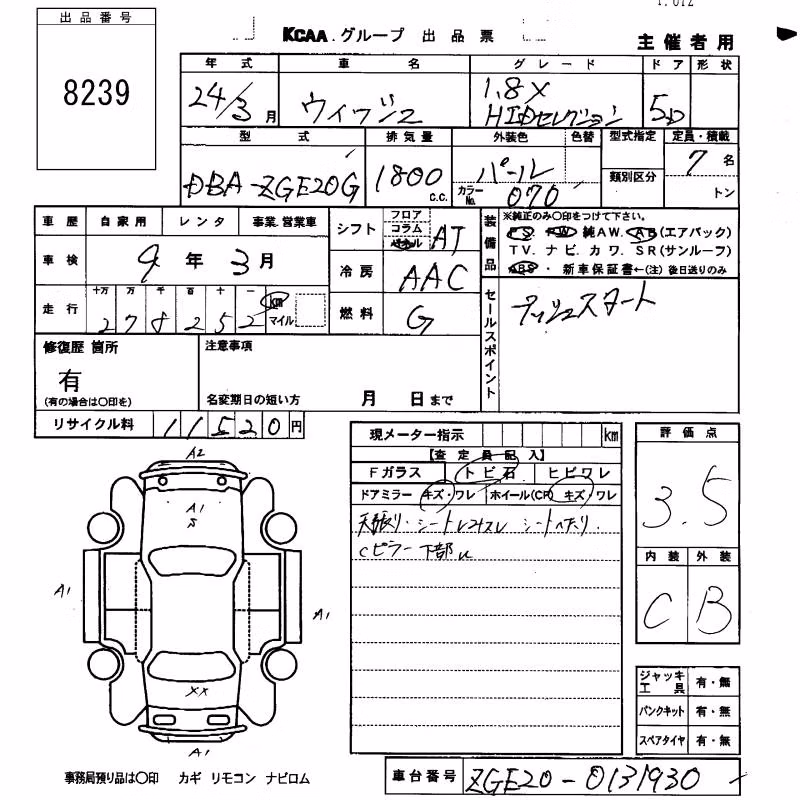 出品番号
8239
KCAA.グループ 出品票
主催者用
年式 車名 グレード ドア 形状
24/3月 ウィッシュ 1.8X
HIDセレクション 5D
型式 排気量 外装色 色替 型式指定 定員・積載
DBA-ZGE20G 1800 c.c. パール 7名
類別区分
カラーNo. 070 トン
車歴 自家用 レンタ 事業.営業車
シフト フロア コラム パネル AT
車検 9年3月
冷房 AAC
走行 十万 万 千 百 十 一
278252 km マイル
燃料 G
装備品 ※純正のみ〇印をつけて下さい。
PS. PW 純AW. AB(エアバック)
TV. ナビ. カワ. SR(サンルーフ)
ABS・ 新車保証書←(注) 後日送りのみ
セールスポイント
プッシュスタート
修復歴 箇所 注意事項
有
(有の場合は〇印を) 名変期日の短い方 月 日まで
リサイクル料 11520円
現メーター指示 km
【査定員記入】
Fガラス トビ石 ヒビワレ
ドアミラー キズ・ワレ ホイール(CP) キズ・ワレ
天張り・シートレコスレ シートヘタリ.
Cピラー下部U
評価点
3.5
内装 外装
C B
A2
A1
S
A1
A1
XX
A1
ジャッキ工具 有・無
パンクキット 有・無
スペアタイヤ 有・無
事務局預り品は〇印 カギ リモコン ナビロム
車台番号 ZGE20-0131930